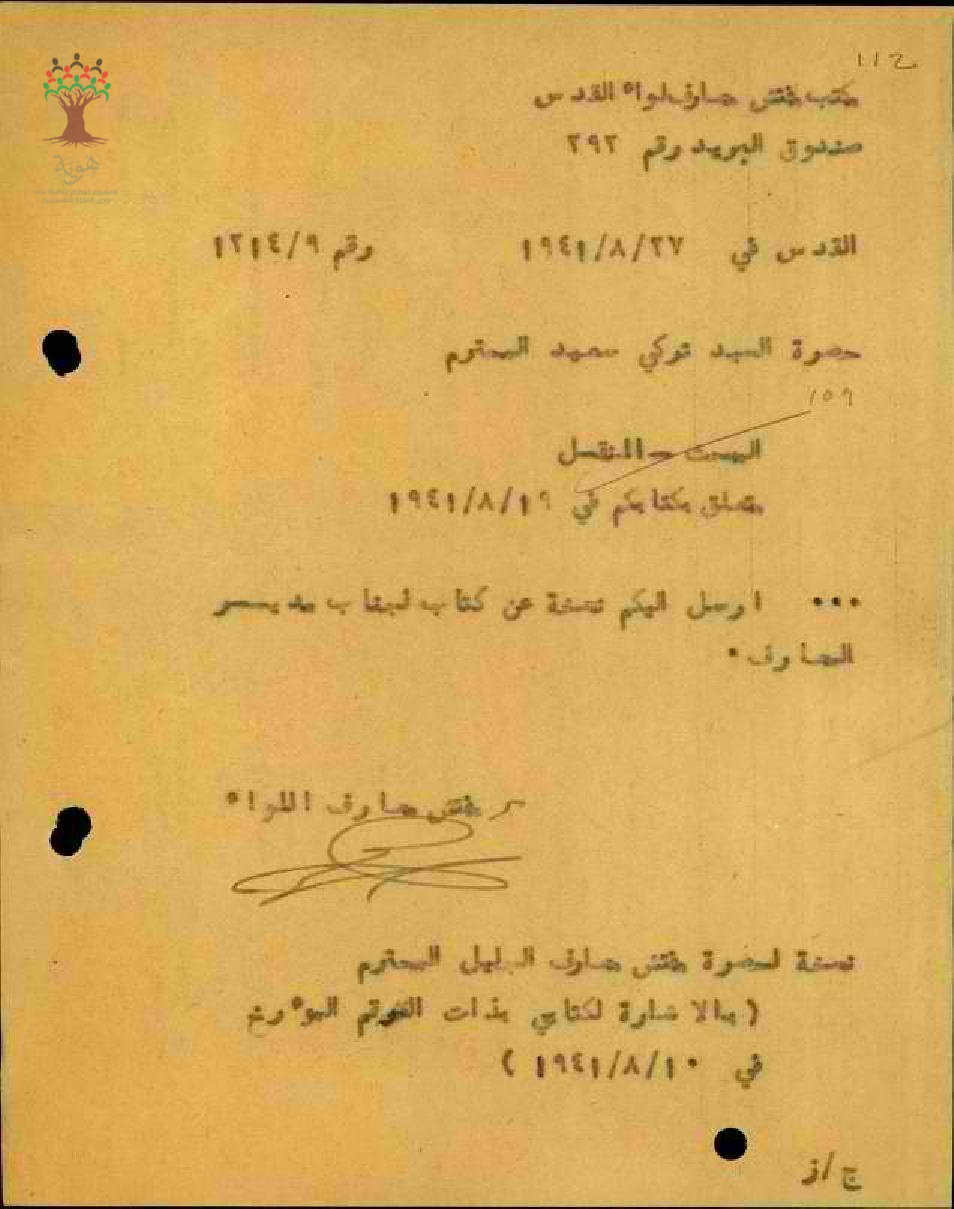 112
مكتب مفتش معارف لواء القدس
صندوق البريد رقم ٢٩٢
القدس في ٢٧/٨/١٩٤١ رقم ١٢١٤/٩
حضرة السيد تركي سعيد المحترم
١٥٩
البحث – النقل
متعلق بكتابكم في ١٩/٨/١٩٤١
... ارسل اليكم نسخة عن كتاب لجناب مدير
المعارف٠
مفتش معارف اللواء
نسخة لحضرة مفتش معارف الجليل المحترم
(بالاشارة لكتابي بذات الرقم المؤرخ
في ١٠/٨/١٩٤١)
ج/ز
هوية